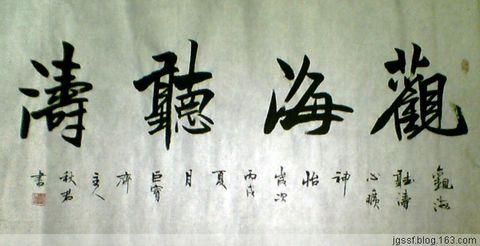 觀海聽濤
觀海聽濤心曠神怡歲次丙戌夏月巨寶齋主人秋書
jgssf.blog.163.com